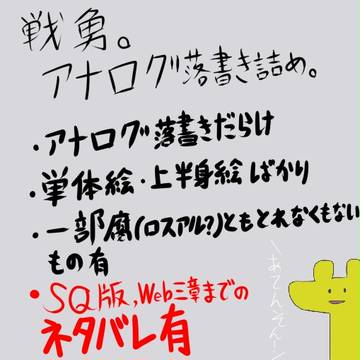 戦勇。
アナログ落書き詰め。
・アナログ落書きだらけ
・単体絵・上半身絵ばかり
・一部腐(ロスアル?)ともとれなくもない
もの有
・SQ版,Web三章までの
ネタバレ有
\あてんそん!/